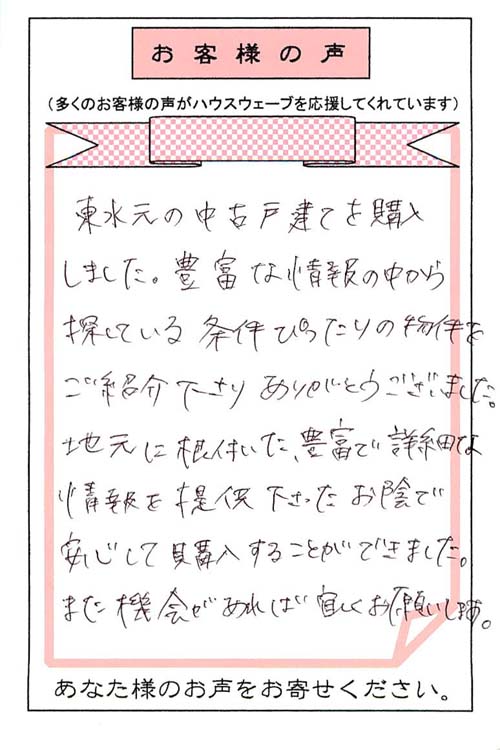 お客様の声
（多くのお客様の声がハウスウェーブを応援してくれています）
東水元の中古戸建てを購入
しました。豊富な情報の中から
探している条件ぴったりの物件を
ご紹介下さりありがとうございました。
地元に根付いた、豊富で詳細な
情報を提供下さったお陰で
安心して購入することができました。
また機会があれば宜しくお願いします。
あなた様のお声をお寄せください。